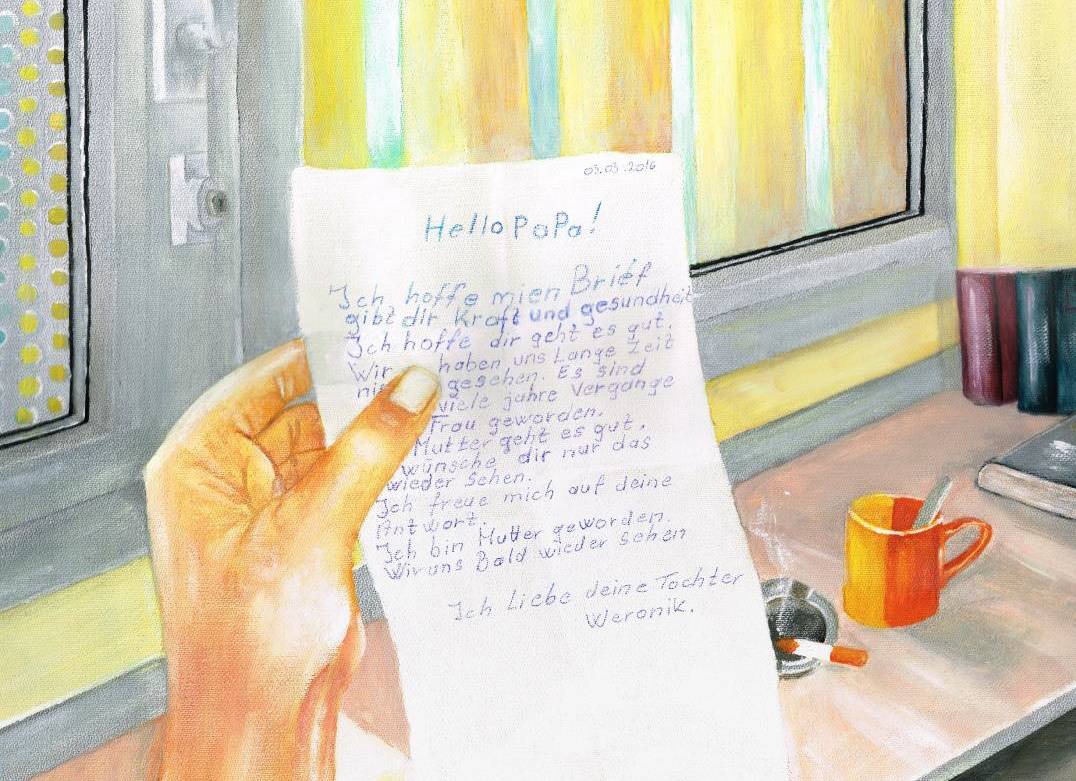 03.03.2016
Hello PaPa!
Ich hoffe mien Brief
gibt dir Kraft und gesundheit
Ich hoffe dir geht es gut.
Wir haben uns Lange Zeit
gesehen. Es sind
viele jahre Vergange
Frau geworden.
Mutter geht es gut.
wünsche dir nur das
wieder Sehen.
Ich freue mich auf deine
Antwort.
Ich bin Mutter geworden.
Wir uns Bald wieder Sehen
Ich Liebe deine Tochter
Weronik.